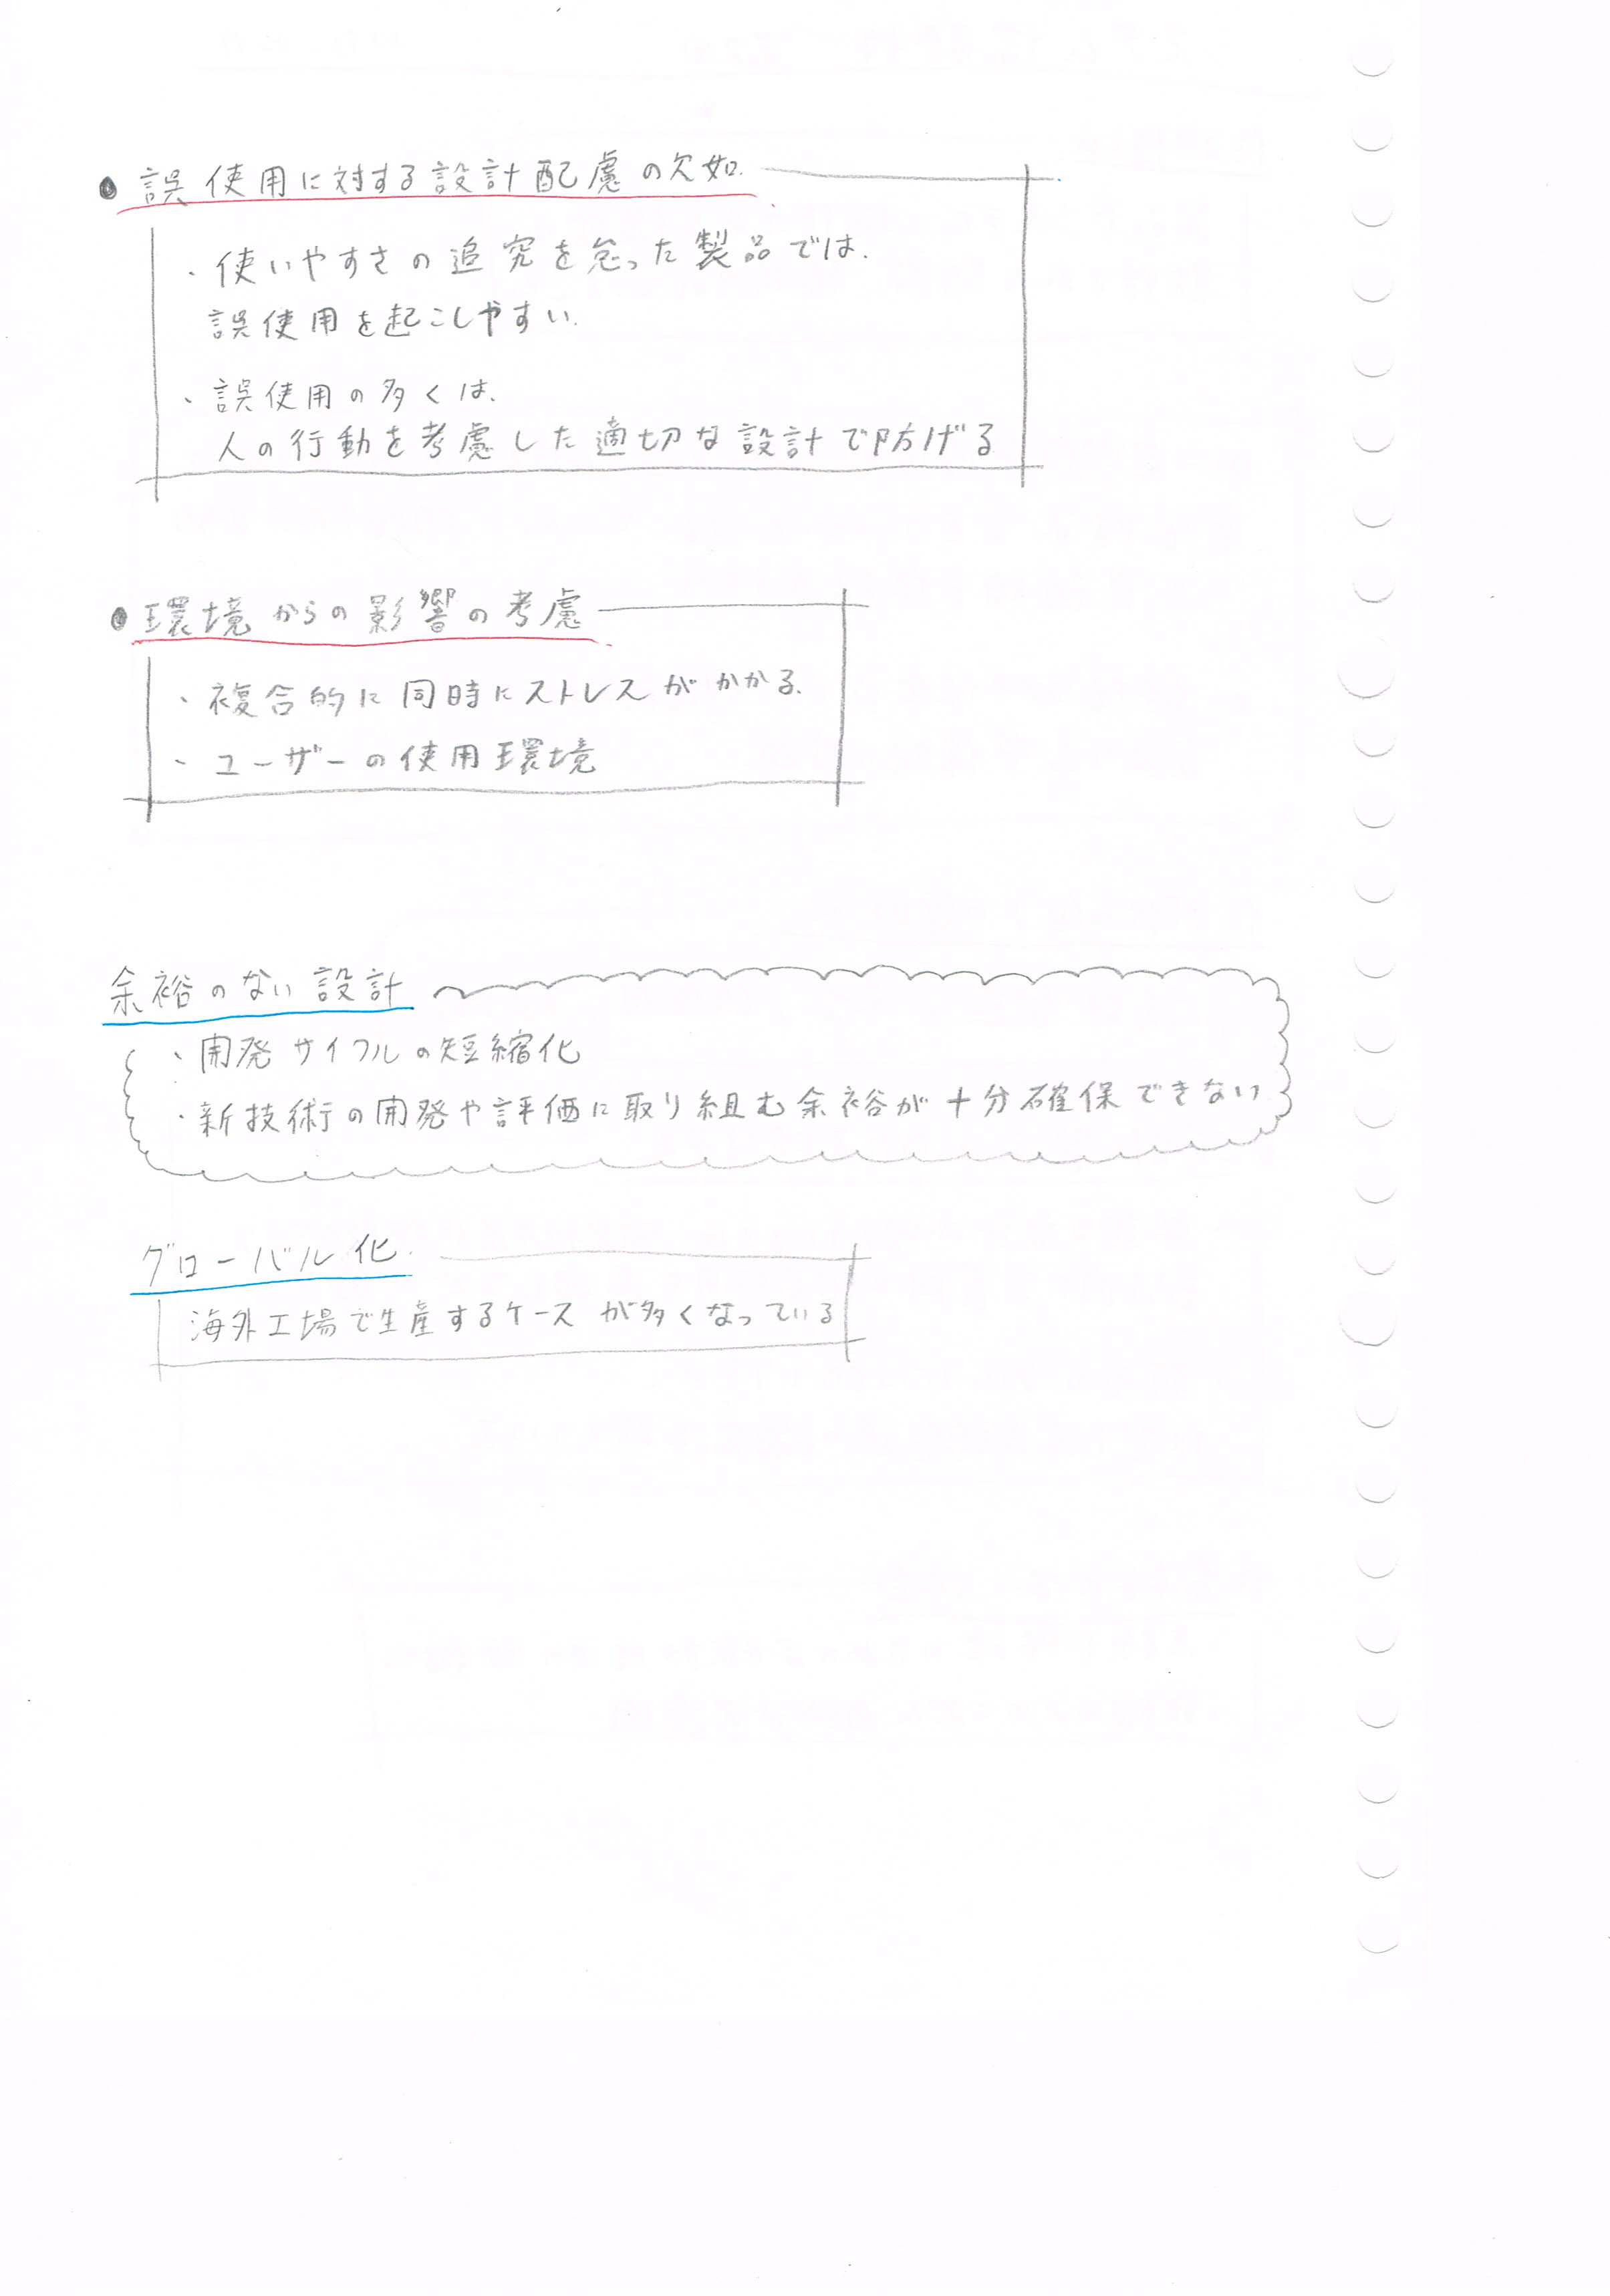 ● 誤使用に対する設計配慮の欠如.
・使いやすさの追究を怠った製品では.
誤使用を起こしやすい.
・誤使用の多くは.
人の行動を考慮した適切な設計で防げる
● 環境からの影響の考慮
・複合的に同時にストレスがかかる.
・ユーザーの使用環境
余裕のない設計
・開発サイクルの短縮化
・新技術の開発や評価に取り組む余裕が十分確保できない
グローバル化.
海外工場で生産するケースが多くなっている